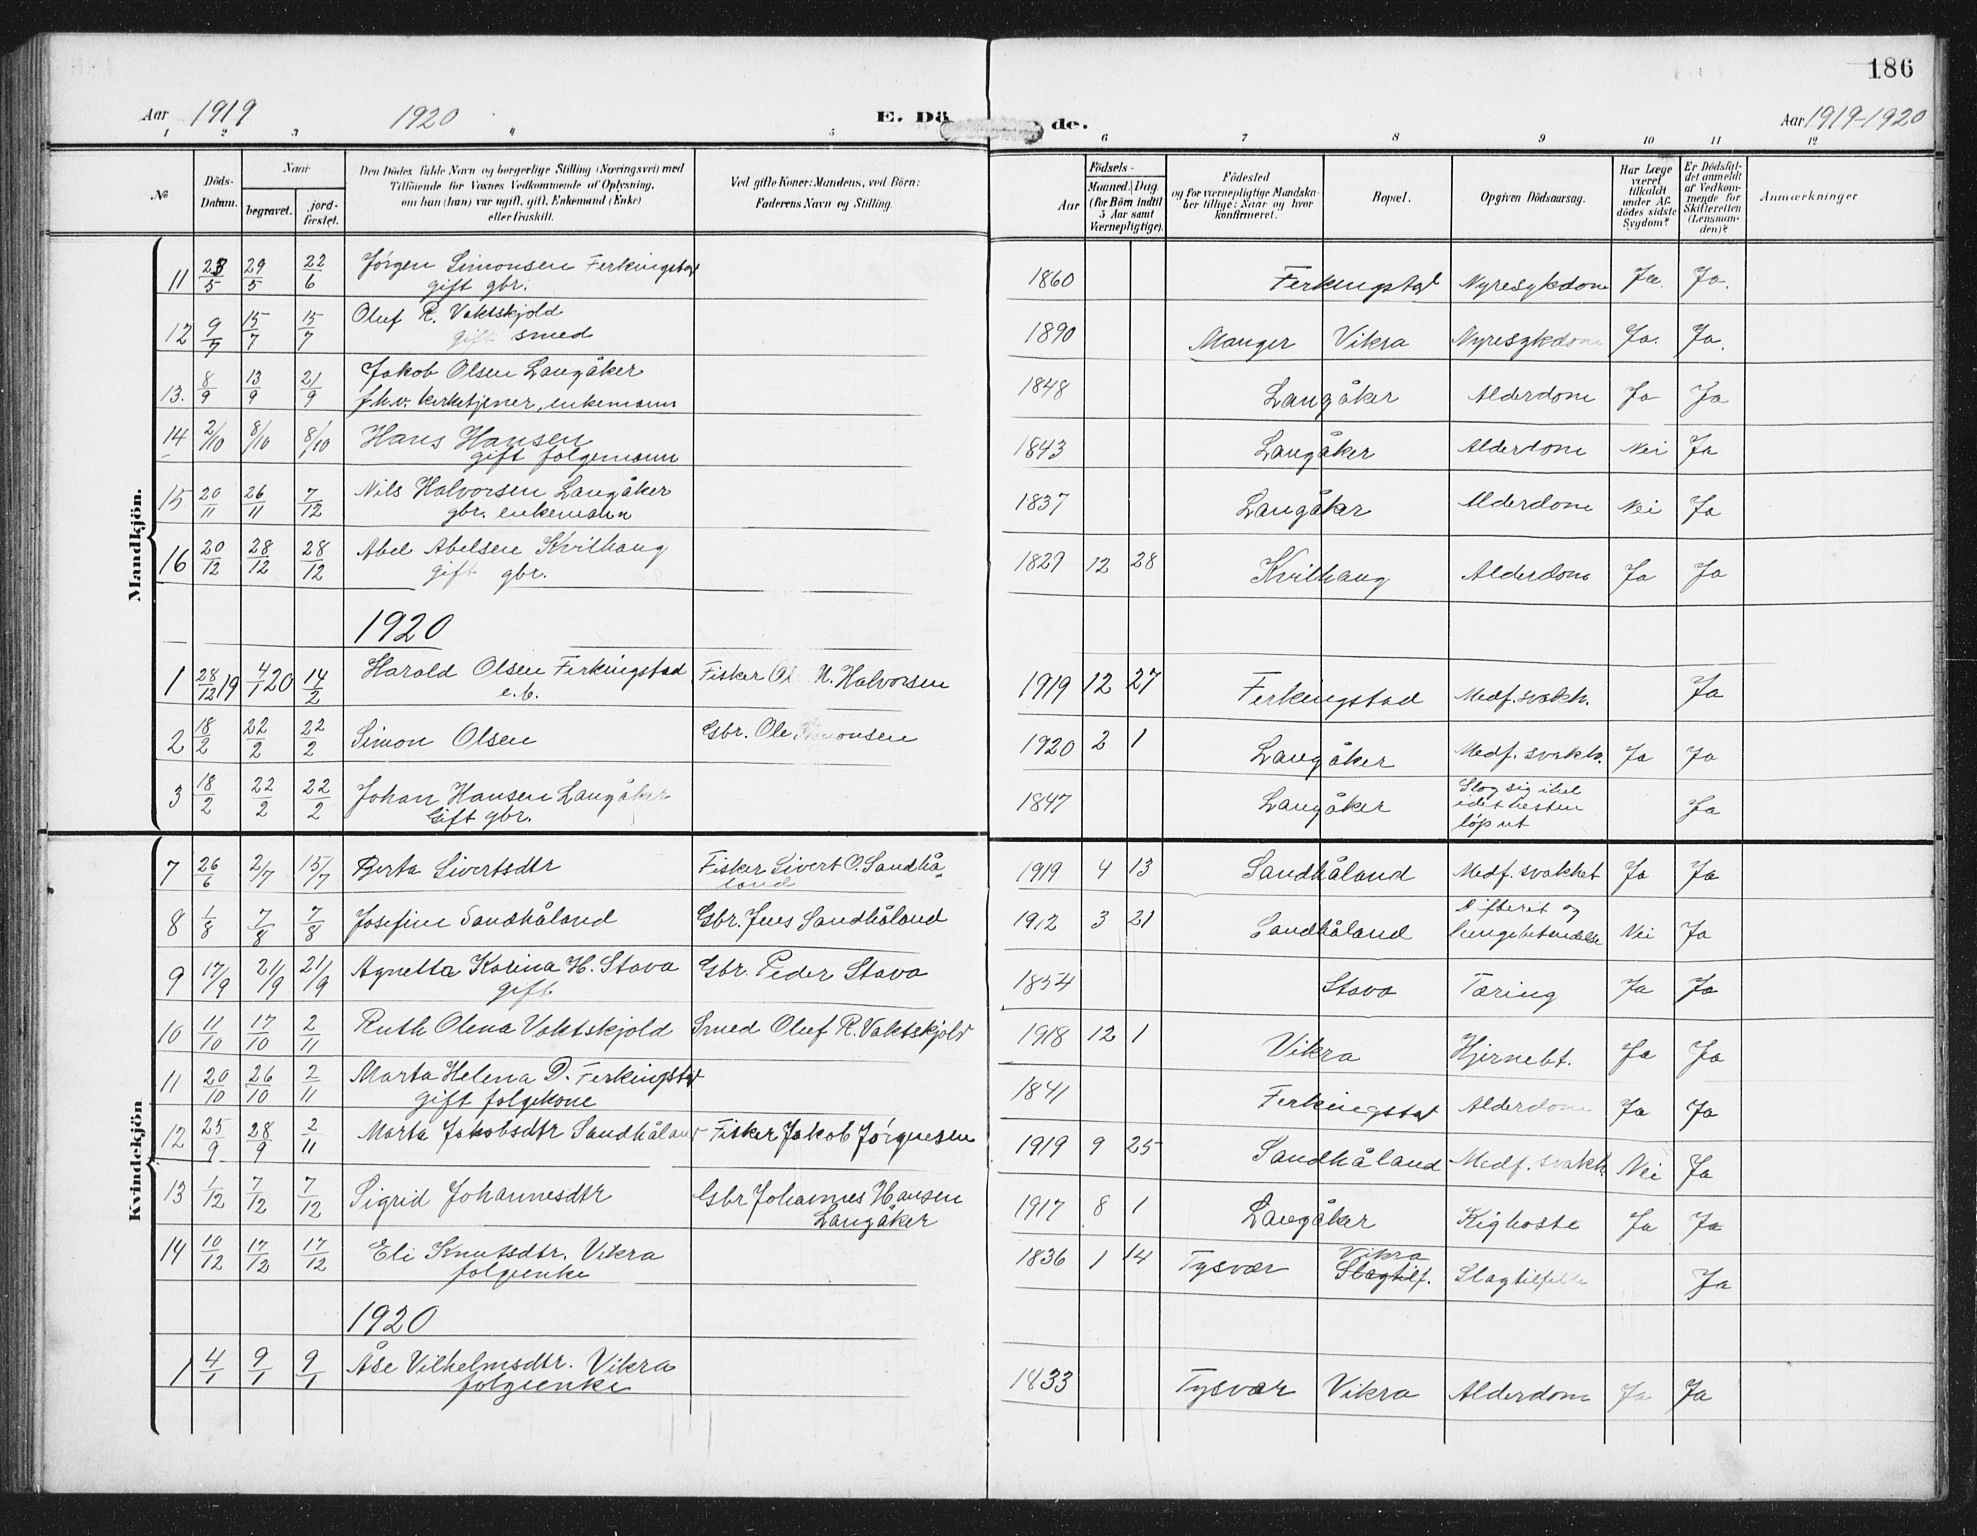 186
Aar 1919 1920 E. Dö de. Aar 1919-1920
1 2 3 4 5 6 7 8 9 10 11 12
No
Döds-Datum.
Naar
begravet.
jord-fæstet.
Den Dödes fulde Navn og borgerlige Stilling (Næringsvei) med
Tilföiende for Voxnes Vedkommende af Oplysning,
om han (hun) var ugift, gift, Enkemand (Enke)
eller fraskilt.
Ved gifte Koner: Mandens, ved Börn:
Faderens Navn og Stilling.
Födsels-
Aar
Maaned. Dag.
(for Börn indtil
5 Aar samt
Værnepligtige).
Födested
og for værnepligtige Mandska-
ber tillige: Naar og hvor
konfirmeret.
Bopæl.
Opgiven Dödsaarsag.
Har Læge
været
tilkaldt
under Af-
dödes sidste
Sygdom?
Er Dödsfal-
det anmeldt
af Vedkom-
mende for
Skifteretten
(Lensman-
den)?
Anmærkninger
Mandkjön.
11 23/5 29/5 22/6 Jörgen Simonsen Ferkingstad 1860 Ferkingstad Nyresykdom Ja. Ja.
gift gbr.
12 9/7 15/7 15/7 Oluf R. Vaktskjold 1890 Manger Vikra Nyresykdom Ja. Ja.
gift smed
13. 8/9 13/9 21/9 Jakob Olsen Langåker 1848 Langåker Alderdom Ja Ja
f.h.v. kirketjener, enkemann
14 2/10 8/10 8/10 Hans Hansen 1843 Langåker Alderdom Nei Ja
gift folgemann
15 20/11 26/11 7/12 Nils Halvorsen Langåker 1837 Langåker Alderdom Nei Ja
gbr. enkemann
16 20/12 28/12 28/12 Abel Abelsen Kvilhaug 1829 12 28 Kvilhaug Alderdom Ja Ja
gift gbr.
1920
1 28/12 19 4/1 20 14/2 Harald Olsen Ferkingstad Fisker Ol N. Halvorsen 1919 12 27 Ferkingstad Medf. svakh. Ja
e.b.
2 18/2 22/2 22/2 Simon Olsen Gbr. Ole Simonsen 1920 2 1 Langåker Medf. svakh. Ja Ja
3 18/2 22/2 22/2 Johan Hansen Langåker 1847 Langåker Slog sig ihel
Gift gbr. idet hesten
löp ut Ja
Kvindekjön
7 26/6 2/7 15/7 Berta Sivertsdtr Fisker Sivert O. Sandhå- 1919 4 13 Sandhåland Medf. svakhet Ja Ja
land
8 1/8 7/8 7/8 Josefine Sandhåland Gbr. Jens Sandhåland 1912 3 21 Sandhåland Difteret og
lungebetendelse Nei Ja
9 17/9 21/9 21/9 Agnetta Karina H. Stava Gbr. Peder Stava 1854 Stava Tæring Ja Ja
gift.
10 11/10 17/10 2/11 Ruth Olena Vaktskjold Smed Oluf R. Vaktskjold 1918 12 1 Vikra Hjernebt. Ja Ja
11 20/10 26/10 2/11 Marta Helena D. Ferkingstad 1841 Ferkingstad Alderdom Ja Ja
gift folgekone
12 25/9 28/9 2/11 Marta Jakobsdtr Sandhåland Fisker Jakob Jörgensen 1919 9 25 Sandhåland Medf. svakh. Nei Ja
13 1/12 7/12 7/12 Sigrid Johannesdtr Gbr Johannes Hansen 1917 8 1 Langåker Kighoste Ja Ja
Langåker
14 10/12 17/12 17/12 Eli Knutsdtr. Vikra 1836 1 14 Tysvær Vikra
folgeenke Slagtilf. Slagtilfelle Ja
1920
1 4/1 9/1 9/1 Åse Vilhelmsdtr. Vikra 1833 Tysvær Vikra Alderdom Ja Ja
folgeenke